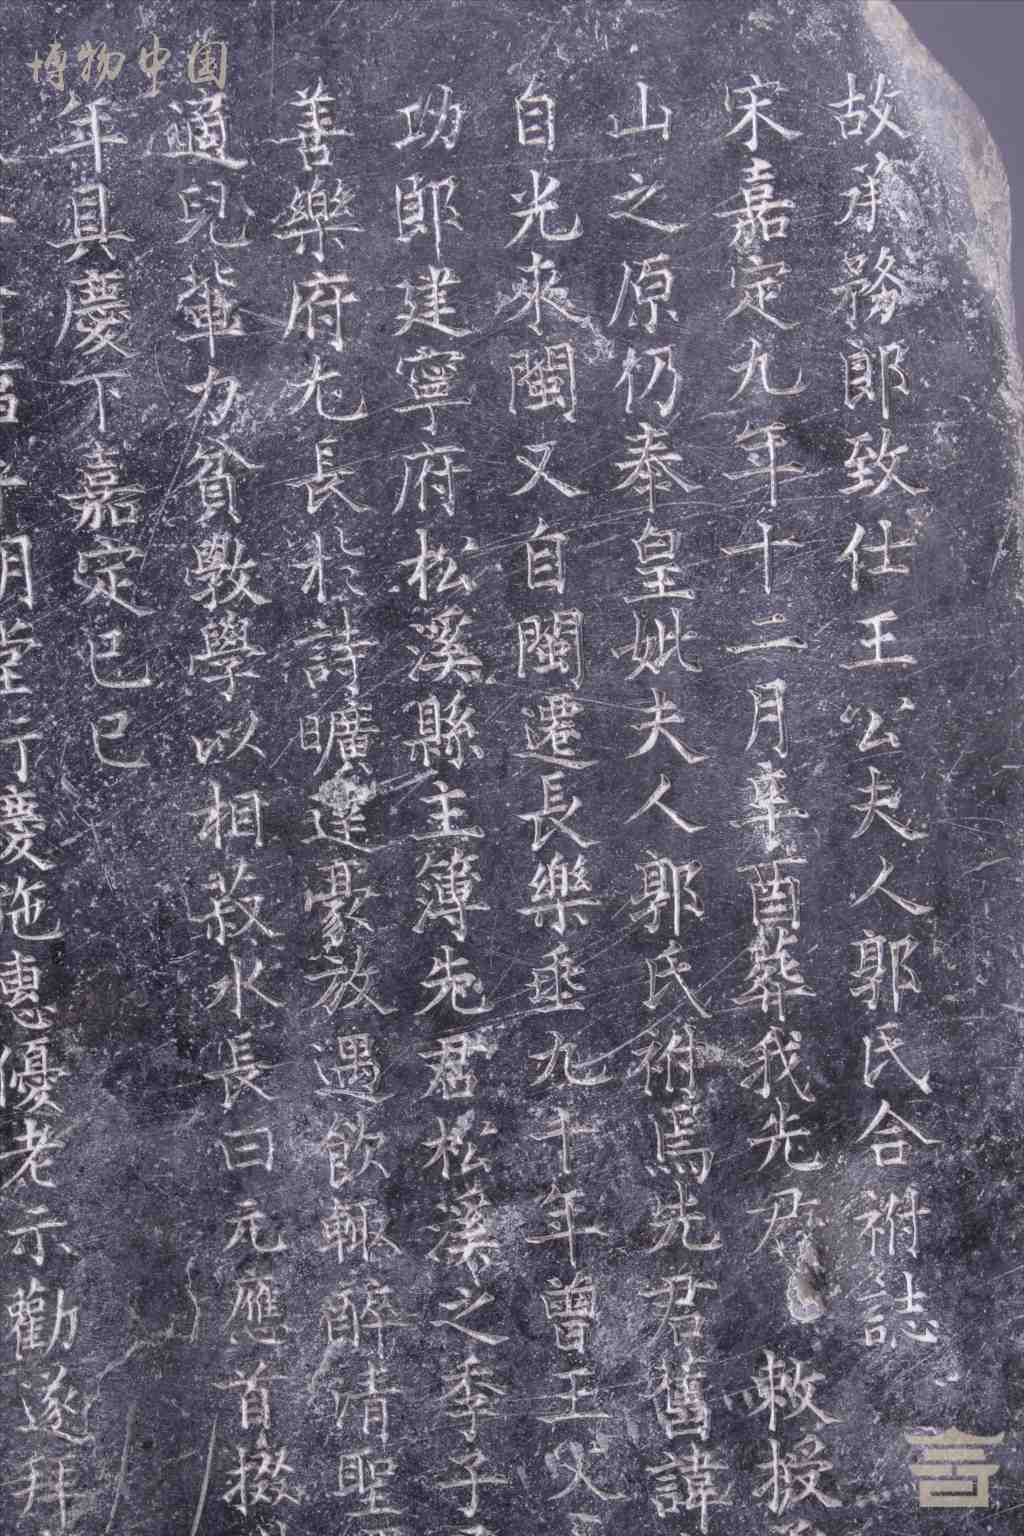 博物中国
故承務郎致仕王公夫人郭氏合祔誌
宋嘉定九年十二月辛酉葬我先君 敕授
山之原仍奉皇妣夫人郭氏祔焉先君舊諱
自光來閩又自閩遷長樂垂九十年曾王父
功郎建寧府松溪縣主簿先君松溪之季子
善樂府尤長於詩曠達豪放遇飲輙醉清聖
適兒輩力貧教學以相菽水長曰元應首掇
年具慶下嘉定己巳
明堂行慶施惠優老示勸遂拜